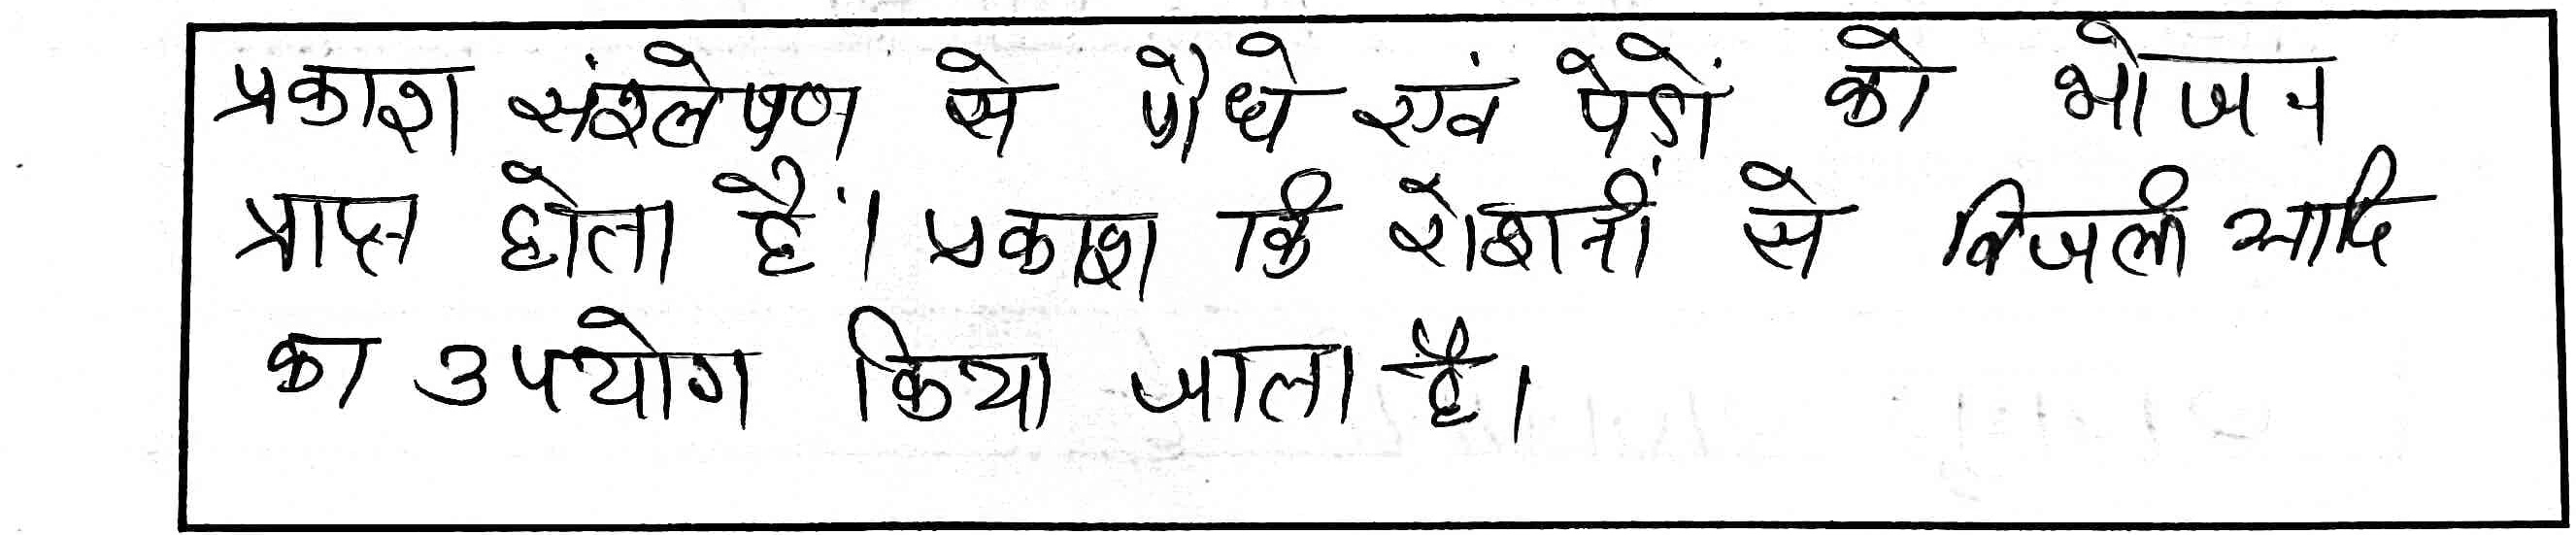 प्रकाश संश्लेषण से पौधे एवं पेडों को भोजन
प्राप्त होता हैं। प्रकाश कि रोशनीं से बिजली आदि
का उपयोग किया जाता है।